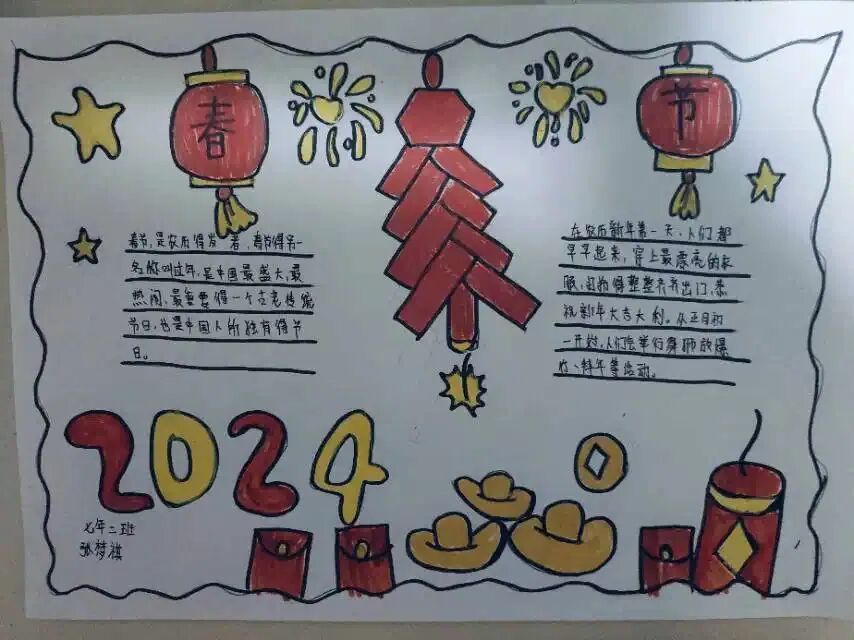 春
节
春节,是农历得岁首,春节得另一
名称叫过年,是中国最盛大,最
热闹、最重要得一个古老传统
节日,也是中国人所独有得节
日。
在农历新年第一天,人们都
早早起来,穿上最漂亮的衣
服,打扮得整整齐齐出门,恭
祝新年大吉大利。从正月初
一开始,人们会举行舞狮放爆
竹、等活动。
2024
七年二班
张梦祺